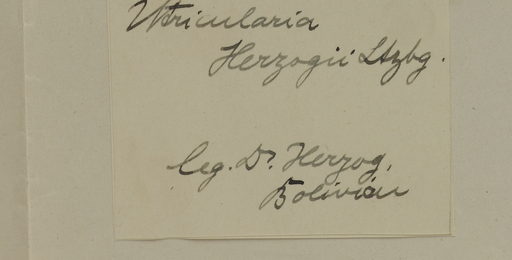 Utricularia
Herzogii Ltzbg.
leg. Dr. Herzog,
Bolivien